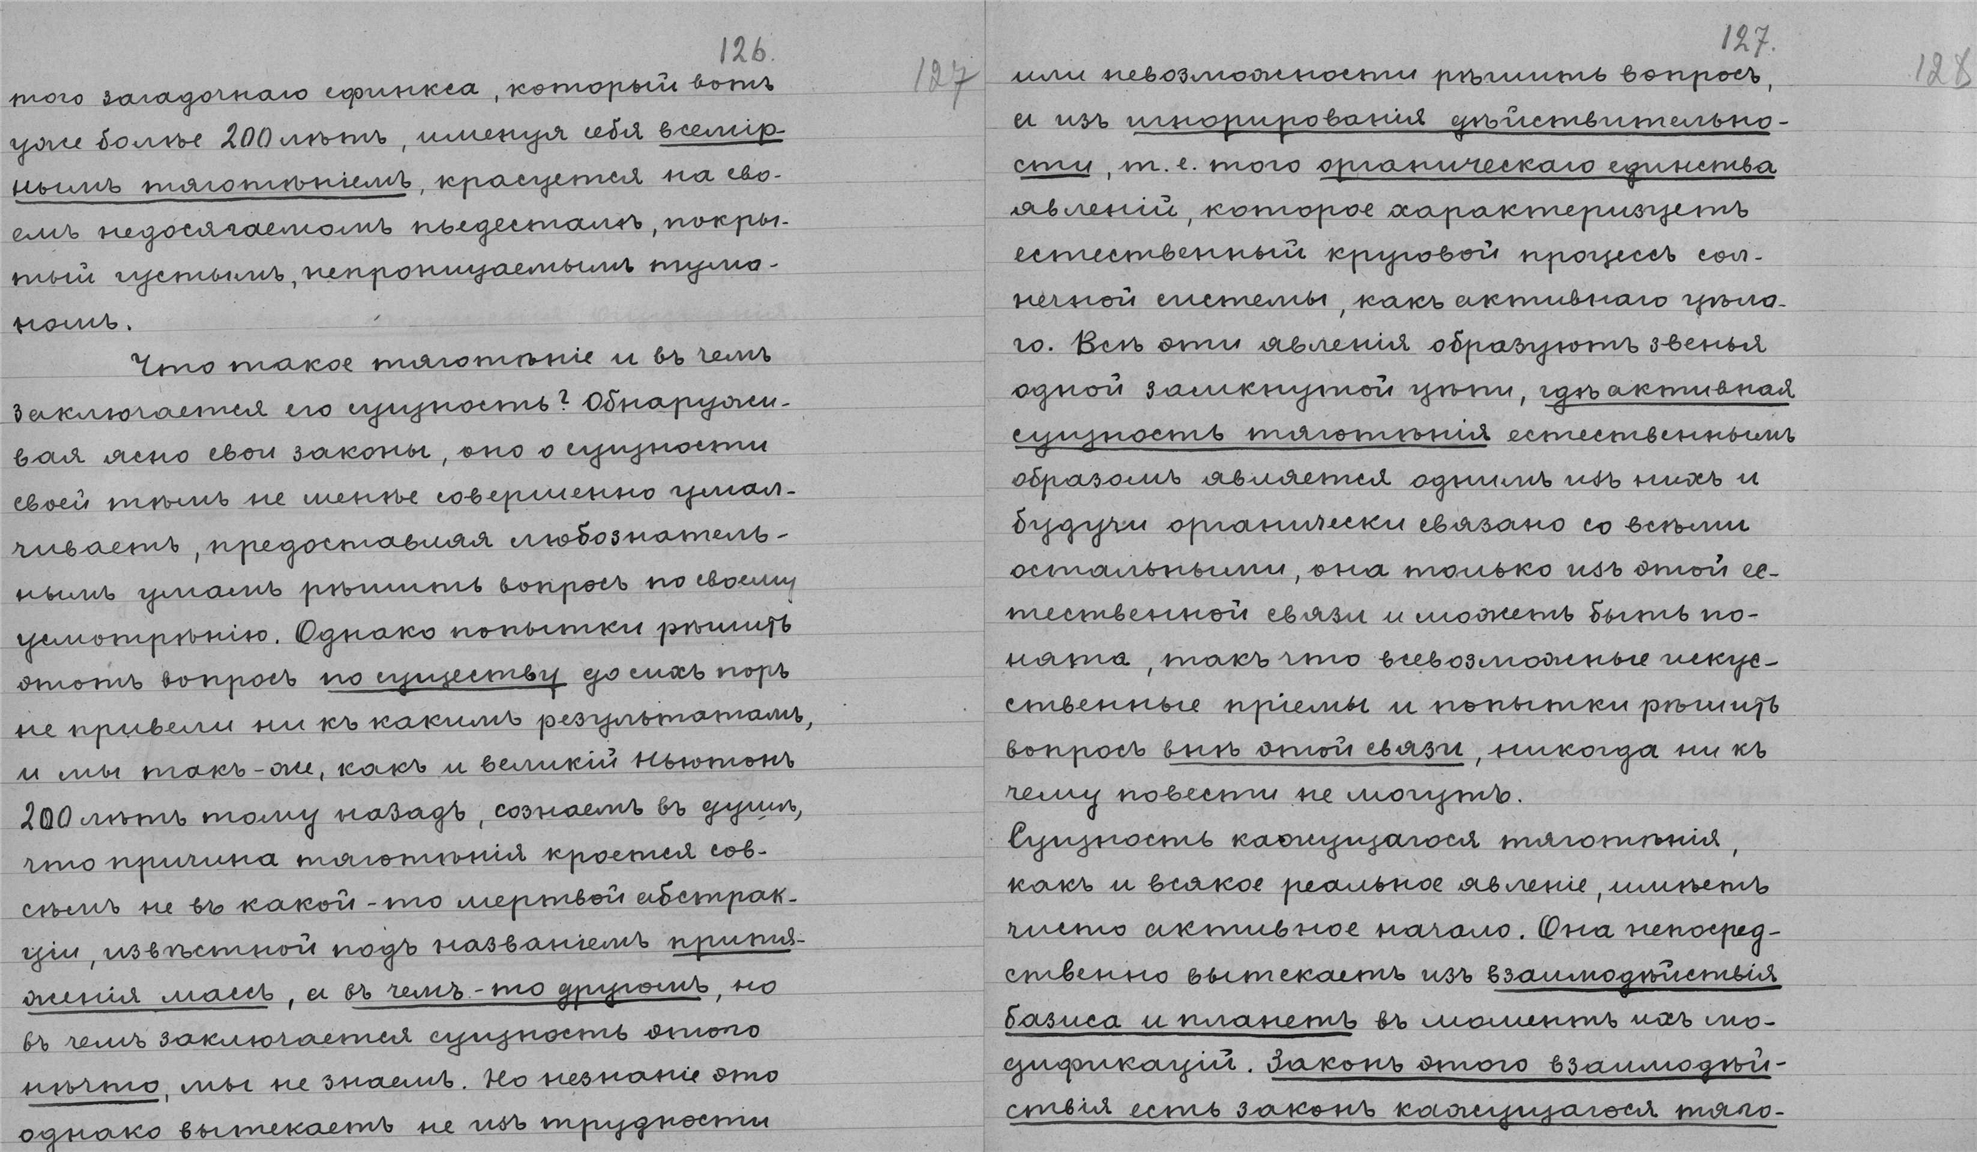 126.
127
того загадочнаго сфинкса, который вотъ
уже болѣе 200 лѣтъ, именуя себя всемір-
нымъ тяготѣніемъ, красуется на сво-
емъ недосягаемомъ пьедесталѣ, покры-
тый густымъ, непроницаемымъ тума-
номъ.
Что такое тяготѣніе и въ чемъ
заключается его сущность? Обнаружи-
вая ясно свои законы, оно о сущности
своей тѣмъ не менѣе совершенно умал-
чиваетъ, предоставляя любознатель-
нымъ умамъ рѣшить вопросъ по своему
усмотрѣнію. Однако попытки рѣшить
этотъ вопросъ по существу до сихъ поръ
не привели ни къ какимъ результатамъ,
и мы такъ-же, какъ и великій Ньютонъ
200 лѣтъ тому назадъ, сознаемъ въ душѣ,
что причина тяготѣнія кроется сов-
сѣмъ не въ какой-то мертвой абстрак-
ціи, извѣстной подъ названіемъ притя-
женія массъ, а въ чемъ-то другомъ, но
въ чемъ заключается сущность этого
нѣчто, мы не знаемъ. Но незнаніе это
однако вытекаетъ не изъ трудности
127.
128
или невозможности рѣшить вопросъ,
а изъ игнорированія дѣйствительно-
сти, т.е. того органическаго единства
явленій, которое характеризуетъ
естественный круговой процессъ сол-
нечной системы, какъ активнаго цѣло-
го. Всѣ эти явленія образуютъ звенья
одной замкнутой цѣпи, гдѣ активная
сущность тяготѣнія естественнымъ
образомъ является однимъ изъ нихъ и
будучи органически связано со всѣми
остальными, она только изъ этой ес-
тественной связи и можетъ быть по-
нята, такъ что всевозможные искус-
ственные пріемы и попытки рѣшить
вопросъ внѣ этой связи, никогда ни къ
чему повести не могутъ.
Сущность кажущагося тяготѣнія,
какъ и всякое реальное явленіе, имѣетъ
чисто активное начало. Она непосред-
ственно вытекаетъ изъ взаимодѣйствія
базиса и планетъ въ моментъ ихъ мо-
дификацій. Законъ этого взаимодѣй-
ствія есть законъ кажущагося тяго-